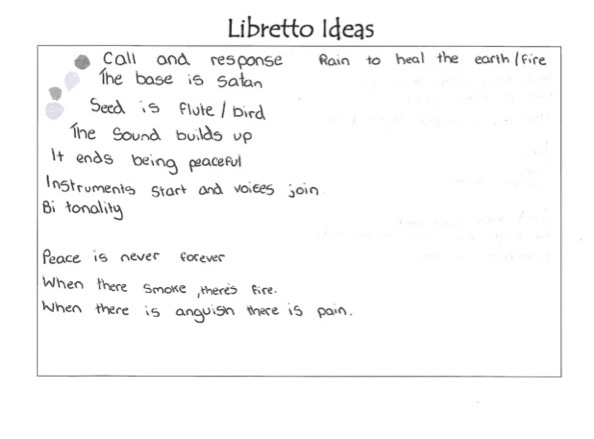 Libretto Ideas
Call and response Rain to heal the earth / fire
The base is satan
Seed is flute / bird
The sound builds up
It ends being peaceful
Instruments start and voices join
Bi tonality
Peace is never forever
When there smoke, there's fire.
When there is anguish there is pain.